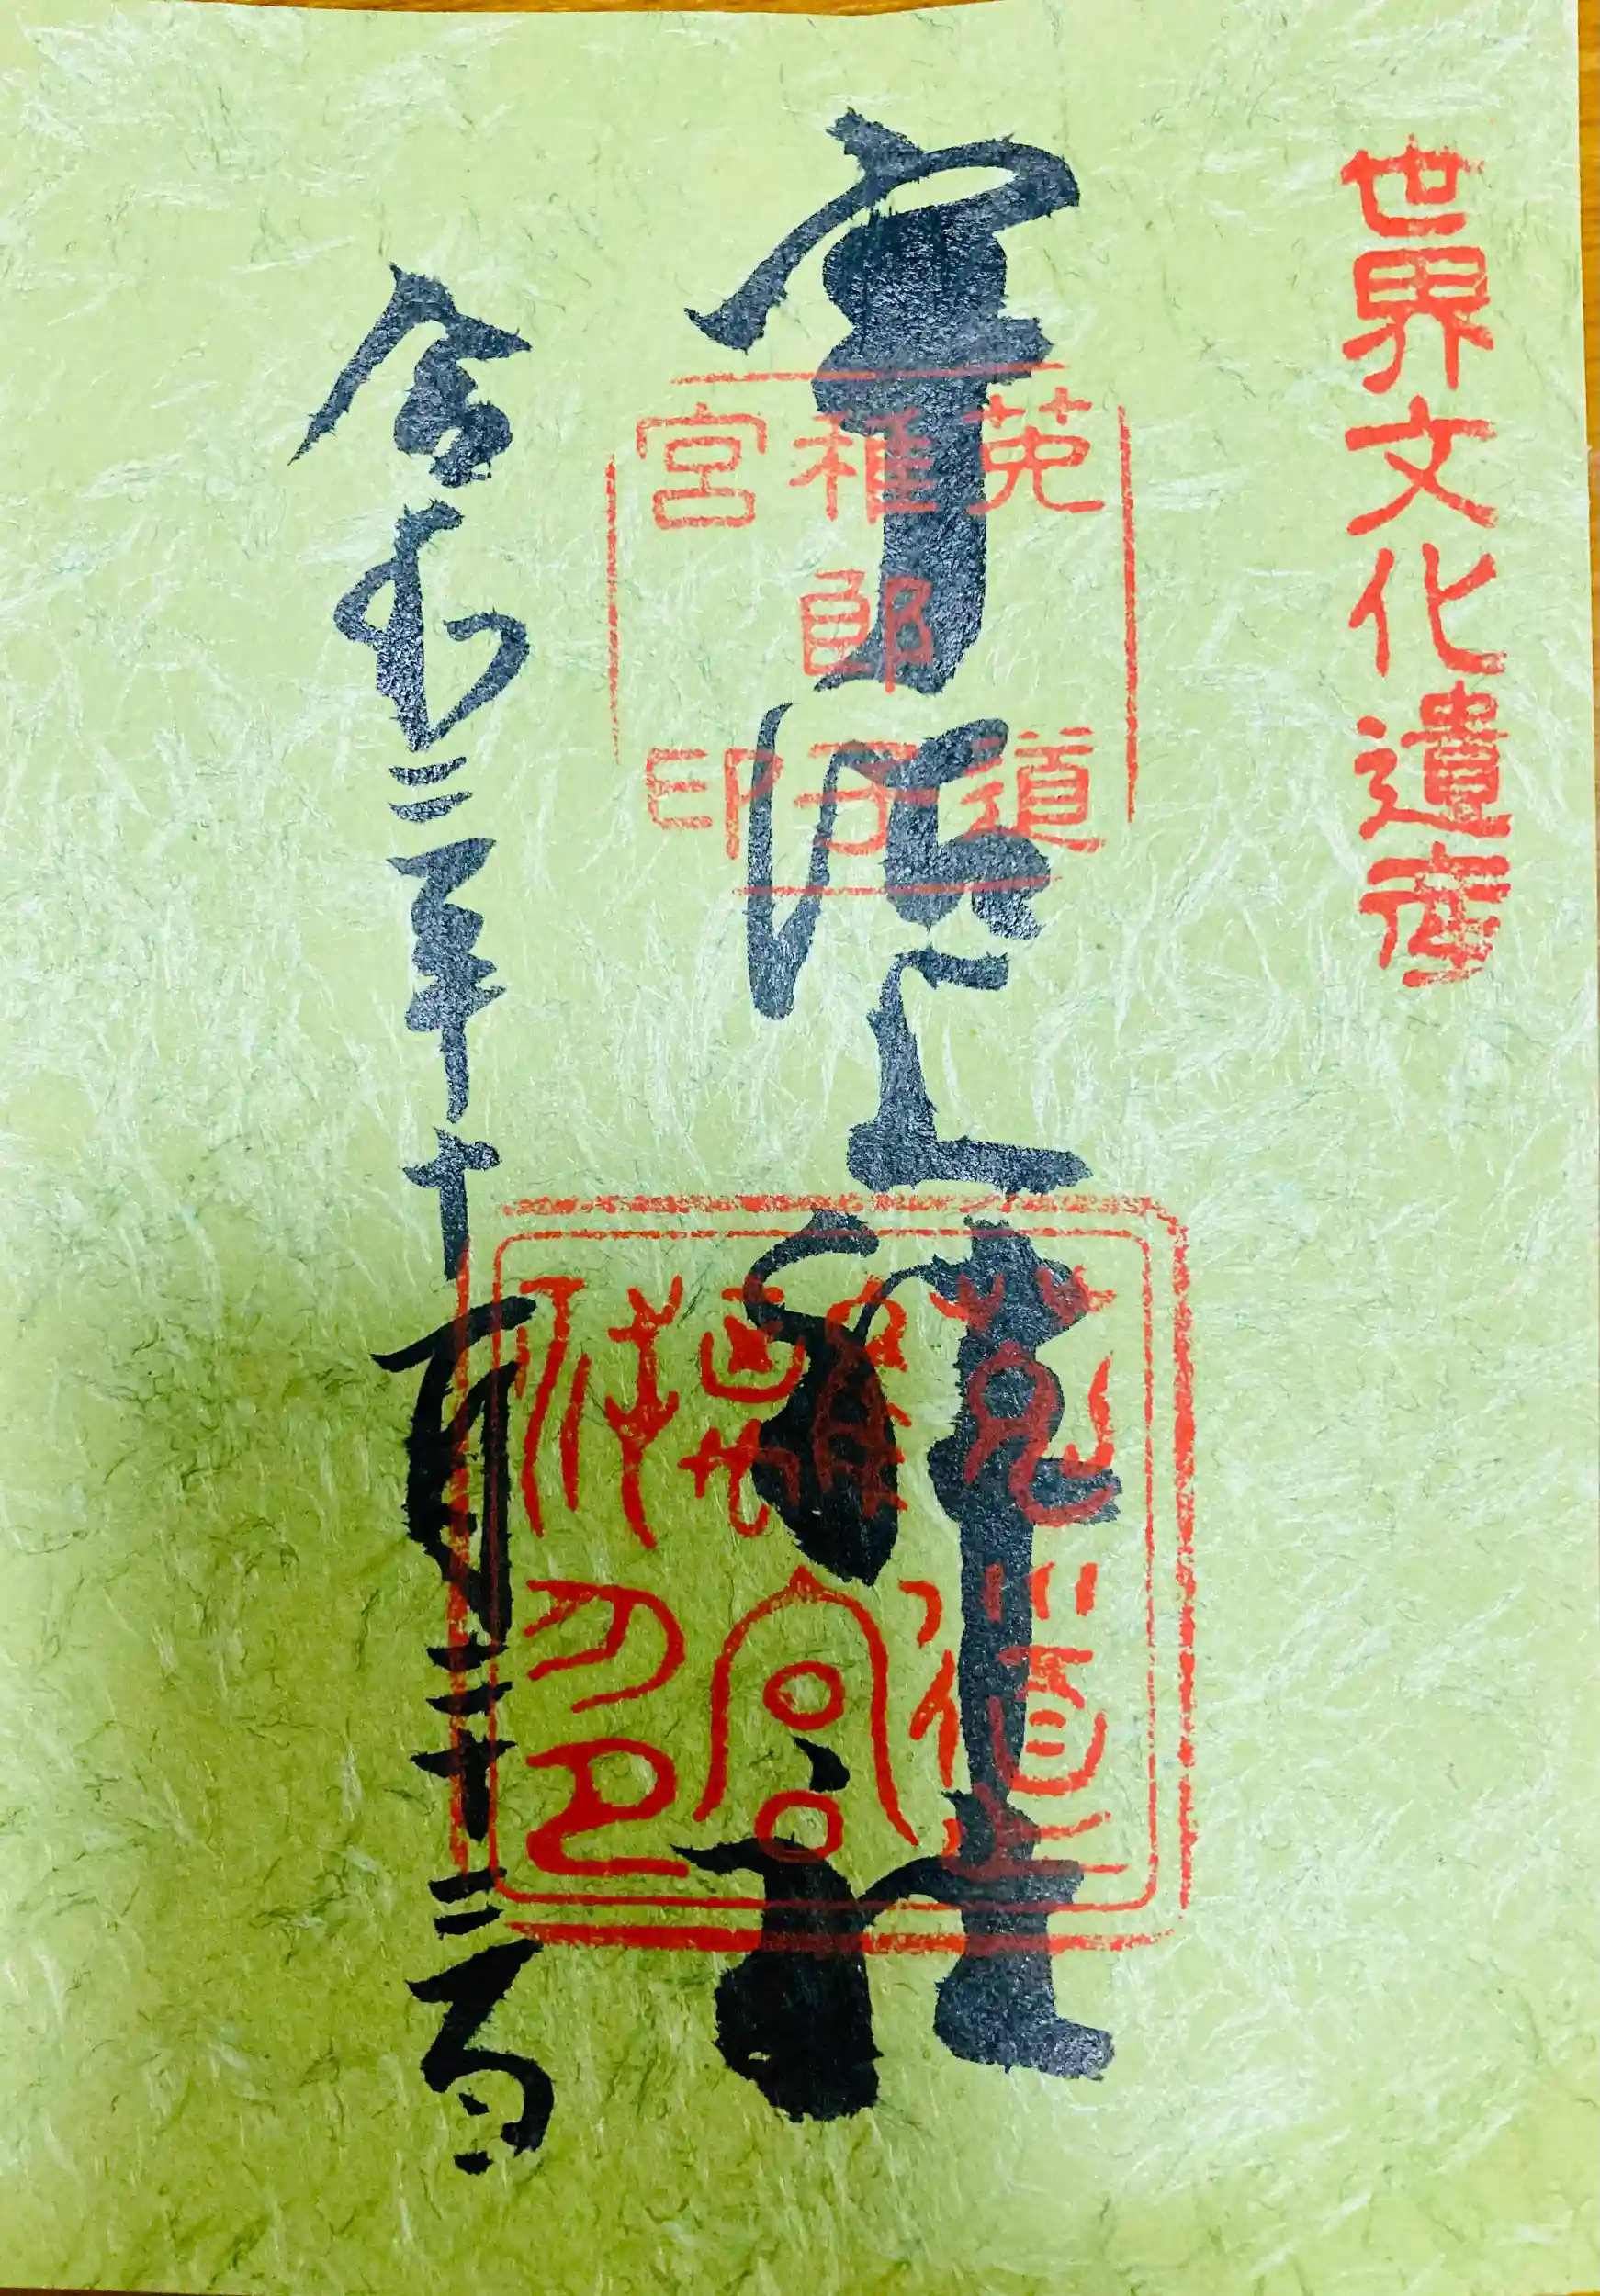 世界文化遺産
宇治上神社
菟道
稚郎子
宮印
令和二年十一月二十二日